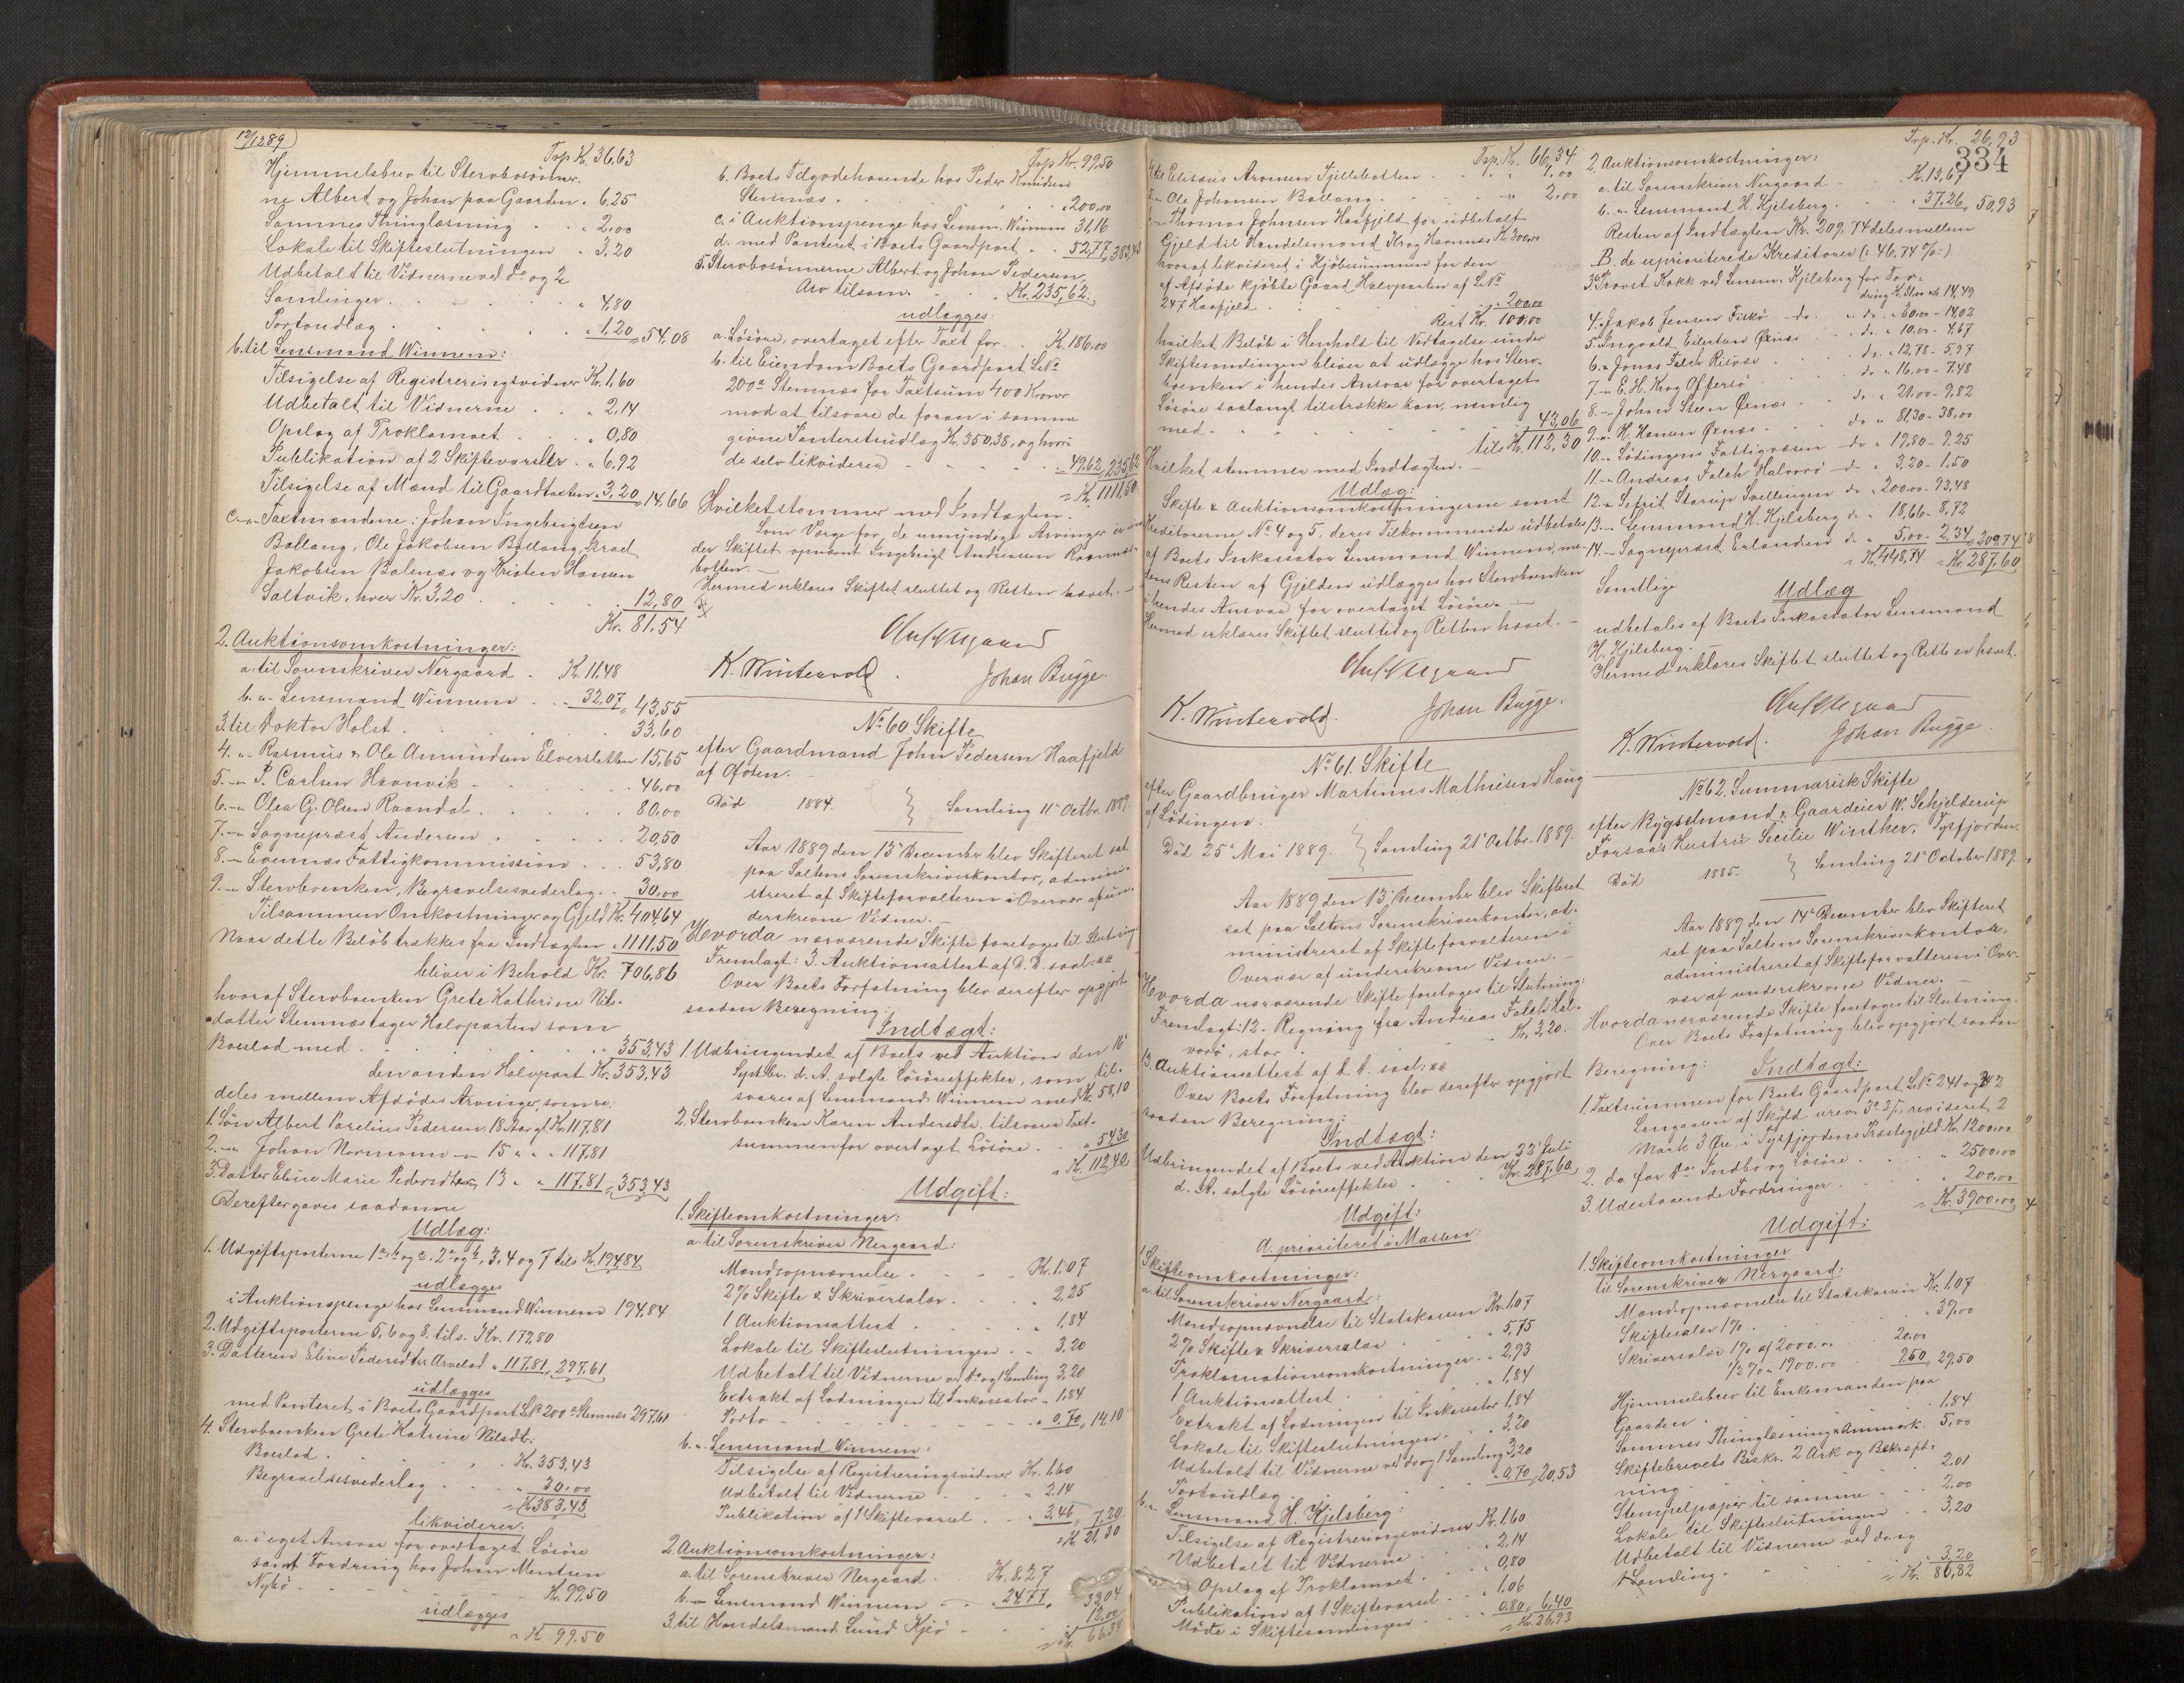 12/12 89)
Trp Kr. 36,63
Hjemmelsbrev til Stervbosønner-
ne Albert og Johan paa Gaarden " 6,25
Sammes Thinglæsning " 2,00
Lokale til Skifteslutningen " 3,20
Udbetalt til Vidnerne ved do og 2
Samlinger " 4,80
Portoudlæg " 1,20 " 54,08
b. til Lensmand Winnem:
Tilsigelse af Registreringsvidner Kr. 1,60
Udbetalt til Vidnerne " 2,14
Opslag af Proklamaet " 0,80
Publikation af 2 Skiftevarsler " 6,92
Tilsigelse af Mænd til Gaardtaxten " 3,20 " 14,66
c. " Taxtmændene: Johan Ingebrigtsen
Ballang, Ole Jakobsen Ballang, Israel
Jakobsen Balnæs og Kristen Hansen
Saltvik, hver Kr. 3,20 12,80
Kr. 81,54
2. Auktionsomkostninger:
a. til Sorenskriver Nergaard Kr. 11,48
b. " Lensmand Winnem 32,07 " 43,55
3. til Doktor Holst 33,60
4. " Rasmus & Ole Amundsen Elversletten 15,65
5. " P. Carlsen Havnvik 46,00
6. " Olea G. Olsen Raandal 80,00
7. " Sognepræst Andersen 20,50
8. " Evennæs Fattigkommission 53,80
9. " Stervboenken, Begravelsesvederlag 30,00
Tilsammen Omkostninger og Gjeld Kr. 404,64
Naar dette Beløb trækkes fra Indtægten " 1111,50
bliver i Behold Kr. 706,86
hvoraf Stervboenken Grete Kathrine Nils-
datter Stemnæs tager Halvparten som
Boeslod med " 353,43
den anden Halvpart Kr. 353,43
deles mellem Afdødes Arvinger, som er:
1. Søn Albert Parelius Pedersen, 18 Aar gl. Kr. 117,81
2. " Johan Normann " 15 " " " 117,81
3. Datter Eline Marie Pedersdtter, 13 " " 117,81 " 353,43
Derefter gaves saadanne
Udlæg:
1. Udgiftsposterne 1 a, b og c. 2 a og b, 3, 4 og 7 tils. Kr. 194,84
udlægges
i Auktionspenge hos Lensmand Winnem 194,84
2. Udgiftsposterne 5, 6 og 8, tils. Kr. 179,80
3. Datteren Eline Pedersdtrs Arvelod " 117,81 " 297,61
udlægges
med Panteret i Boets Gaardpart LNo 200 a Stemnæs 297,61
4. Stervboenken Grete Katrine Nilsdtr:
Boeslod Kr. 353,43
Begravelsesvederlag " 30,00
" Kr. 383,43
likviderer:
a. i eget Ansvar for overtaget Løsøre
samt Fordring hos Johan Mentsen
Nybø Kr. 99,50
udlægges
" Kr. 99,50
Trp Kr. 99,50
b. Boets Tilgodehavende hos Peder Knudsen
Stemnæs " 200,00
c. i Auktionspenge hos Lensm. Winnem 31,16
d. med Panteret i Boets Gaardpart " 52,77 " 383,43
5. Stervbosønnerne Albert og Johan Pedersen
Arv tilsam. Kr. 235,62
udlægges:
a. Løsøre, overtaget efter Taxt for Kr. 186,00
b. til Eiendom Boets Gaardpart LNo
200 a Stemnæs for Taxtsum 400 Kroner
mod at tilsvare de foran i samme
givne Panteretsudlæg Kr. 350,38, og hvori
de selv likviderer " 49,62 " 235,62
" Kr. 1111,50
Hvilket stemmer med Indtægten.
Som Værge for de umyndige Arvinger
der Skiftet opnævnt Ingebrigt Andreassen
botten.
Hermed erklæres Skiftet sluttet og Retten hævet.
K. Wintervold. Johan Bugge.
No 60 Skifte
efter Gaardmand John Pedersen Haafjeld
af Ofoten.
Død 1884. } Samling 11te Octbr. 1889.
Aar 1889 den 13de December blev Skifteret sat
paa Saltens Sorenskriverkontor, admini-
streret af Skifteforvalteren i Overvær af un-
derskrevne Vidner.
Hvorda nærværende Skifte foretoges til Slutning.
Fremlagt: 3. Auktionsattest af D. D. saal:
Over Boets Forfatning blev derefter opgjort
saadan Beregning:
Indtægt:
1. Udbringendet af Boets ved Auktion den 16de
Septbr. d. A. solgte Løsøreeffekter, som til-
svares af Lensmand Winnem med Kr. 58,10
2. Stervboenken Karen Andersdtr. tilsvarer Taxt-
summen for overtaget Løsøre " 54,30
" Kr. 112,40
Udgift:
1. Skifteomkostninger:
a. til Sorenskriver Nergaard:
Mandsopnævnelse Kr. 1,07
2% Skifte & Skriversalær " 2,25
1 Auktionsattest " 1,84
Lokale til Skifteslutningen " 3,20
Udbetalt til Vidnerne v. do og 1 Samling 3,20
Extrakt af Lodningen til Inkassator " 1,84
Porto " 0,70 " 14,10
b. " Lensmand Winnem:
Tilsigelse af Registreringsvidner Kr. 1,60
Udbetalt til Vidnerne " 2,14
Publikation af 1 Skiftevarsel " 3,46 " 7,20
" Kr. 21,30
2. Auktionsomkostninger:
a. til Sorenskriver Nergaard Kr. 8,27
b. " Lensmand Winnem " 24,77 " 33,04
3. til Handelsmand Lund Kjeø " 12,00
" Kr. 66,34
Trp. Kr. 66,34
4. til Elisæus Aronsen Fjellbotten " 1,00
5. " Ole Johansen Ballang " 2,00
" Thomas Johnsen Haafjeld for udbetalt
Gjeld til Handelsmand Krog Havnnæs Kr. 300,00
hvoraf likvideret i Kjøbesummen for den
af Afdøde kjøbte Gaard Halvparten af LNo
247 Haafjeld " 200,00
Rest Kr. 100,00
hvilket Beløb i Henhold til Vedtagelse under
Skiftesamlingen bliver at udlægge hos Sterv-
boenken i hendes Ansvar for overtaget
Løsøre saalangt tilstrække kan, nemlig
med " 43,06
tils. Kr. 112,30
Hvilket stemmer med Indtægten.
Udlæg:
Skifte & Auktionsomkostningerne samt
Kreditorerne No 4 og 5, deres Tilkommende udbetales
af Boets Inkassator Lensmand Winnem, me-
dens Resten af Gjelden udlægges hos Stervboenken
i hendes Ansvar for overtaget Løsøre.
Hermed erklæres Skiftet sluttet og Retten hævet.
K. Wintervold. Johan Bugge.
No 61. Skifte
efter Gaardbruger Martinus Mathisen Haug
af Lødingen.
Død 25de Mai 1889. } Samling 21de Octbr. 1889.
Aar 1889 den 13de December blev Skifteret
sat paa Saltens Sorenskriverkontor, ad-
ministreret af Skifteforvalteren i
Overvær af underskrevne Vidner.
Hvorda nærværende Skifte foretoges til Slutning:
Fremlagt: 12. Regning fra Andreas Falch Hal-
varø, stor Kr. 3,20.
13. Auktionsattest af D. D. saal:
Over Boets Forfatning blev derefter opgjort
saadan Beregning:
Indtægt:
Udbringendet af Boets ved Auktion den 32 Juli
d. A. solgte Løsøreeffekter Kr. 287,60
Udgift:
A. prioriteret i Massen:
1. Skifteomkostninger:
a. til Sorenskriver Nergaard:
Mandsopnævnelse til Statskassen Kr. 1,07
2% Skifte & Skriversalær " 5,75
Proklamationsomkostninger " 2,93
1 Auktionsattest " 1,84
Extrakt af Lodningen til Inkassator 1,84
Lokale til Skifteslutningen " 3,20
Udbetalt til Vidnerne ved do og 1 Samling 3,20
Portoudlæg " 0,70 " 20,53
b. " Lensmand H. Kjelsberg:
Tilsigelse af Registreringsvidner Kr. 1,60
Udbetalt til Vidnerne " 2,14
Opslag af Proklamaet " 0,80
Publikation af 1 Skiftevarsel " 1,06
Møde i Skiftesamlingen " 0,80 " 6,40
" Kr. 26,93
334
Trp. Kr. 26,93
2. Auktionsomkostninger:
a. til Sorenskriver Nergaard Kr. 13,67
b. " Lensmand H. Kjelsberg " 37,26 " 50,93
Resten af Indtægten Kr. 209,74 deles mellem
B. de uprioriterede Kreditorer (: 46,74 % :)
3. Provst Kokk ved Lensm. Kjelsberg for For-
dring Kr. 31,00 Kr. 14,49
4. " Jakob Jensen Fiskø do. " do. " 30,00 - 14,02
5. " Ingvald Eilertsen Øxnæs " do. " 10,00 - 4,67
6. " Jonas Falch Risvær do. " 12,78 - 5,97
7. " E. H. Krog Offersø do " 16,00 - 7,48
8. " Johan Steen Øxnæs do. " 21,00 - 9,82
9. " H. Hansen Øxnæs do " 81,30 - 38,00
10. " Lødingens Fattigvæsen do " 19,80 - 9,25
11. " Andreas Falch Halvarø do. " 3,20 - 1,50
12. " Sefrit Starup Svellingen do " 200,00 - 93,48
13. " Lensmand H. Kjelsberg do " 18,66 - 8,72
14. " Sognepræst Erlandsen do " 5,00 - 2,34 " 209,74
" Kr. 448,74 " Kr. 287,60
Udlæg
Samtlige
udbetales af Boets Inkassator Lensmand
H. Kjelsberg.
Hermed erklæres Skiftet sluttet og Retten hævet.
K. Wintervold. Johan Bugge
No 62. Summarisk Skifte
efter Bygselmand & Gaardeier W. Schjelderup
Forsaas Hustru Secilie Winther, Tysfjorden.
Død 1885. } Samling 21de October 1889.
Aar 1889 den 14de December blev Skifteret
sat paa Saltens Sorenskriverkontor,
administreret af Skifteforvalteren i Over-
vær af underskrevne Vidner.
Hvorda nærværende Skifte foretoges til Slutning.
Over Boets Forfatning blev opgjort saadan
Beregning:
Indtægt:
1. Taxtsummen for Boets Gaardpart LNo 241 og 242
af Skyld urev. revideret 2
Mark 3 Øre i Tysfjordens Præstegjeld Kr. 1200,00
2. do. for do Indbo og Løsøre " 2500,00
3. Udestaaende Fordringer " 200,00
" Kr. 3900,00
Udgift:
1. Skifteomkostninger
til Sorenskriver Nergaard:
Mandsopnævnelse til Statskassen Kr. 1,07
Skiftesalær 1% " 39,00
Skriversalær 1% af 2000,00 20,00
1/2 % " 1900,00 9,50 " 29,50
Hjemmelsbrev til Enkemanden paa
Gaarden " 1,84
Sammes Thinglæsning & Anmærk. 5,00
Skiftebrevets Beskr. 2 Ark og Bekræft-
ning 2,01
Stempelpapir til samme 2,00
Lokale til Skifteslutningen " 3,20
Udbetalt til Vidnerne ved do og
1 Samling " 3,20
" Kr. 86,82